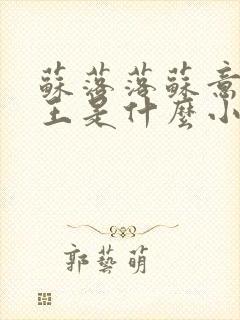 蘇落落蘇意
王是什麼小
郭藝萌